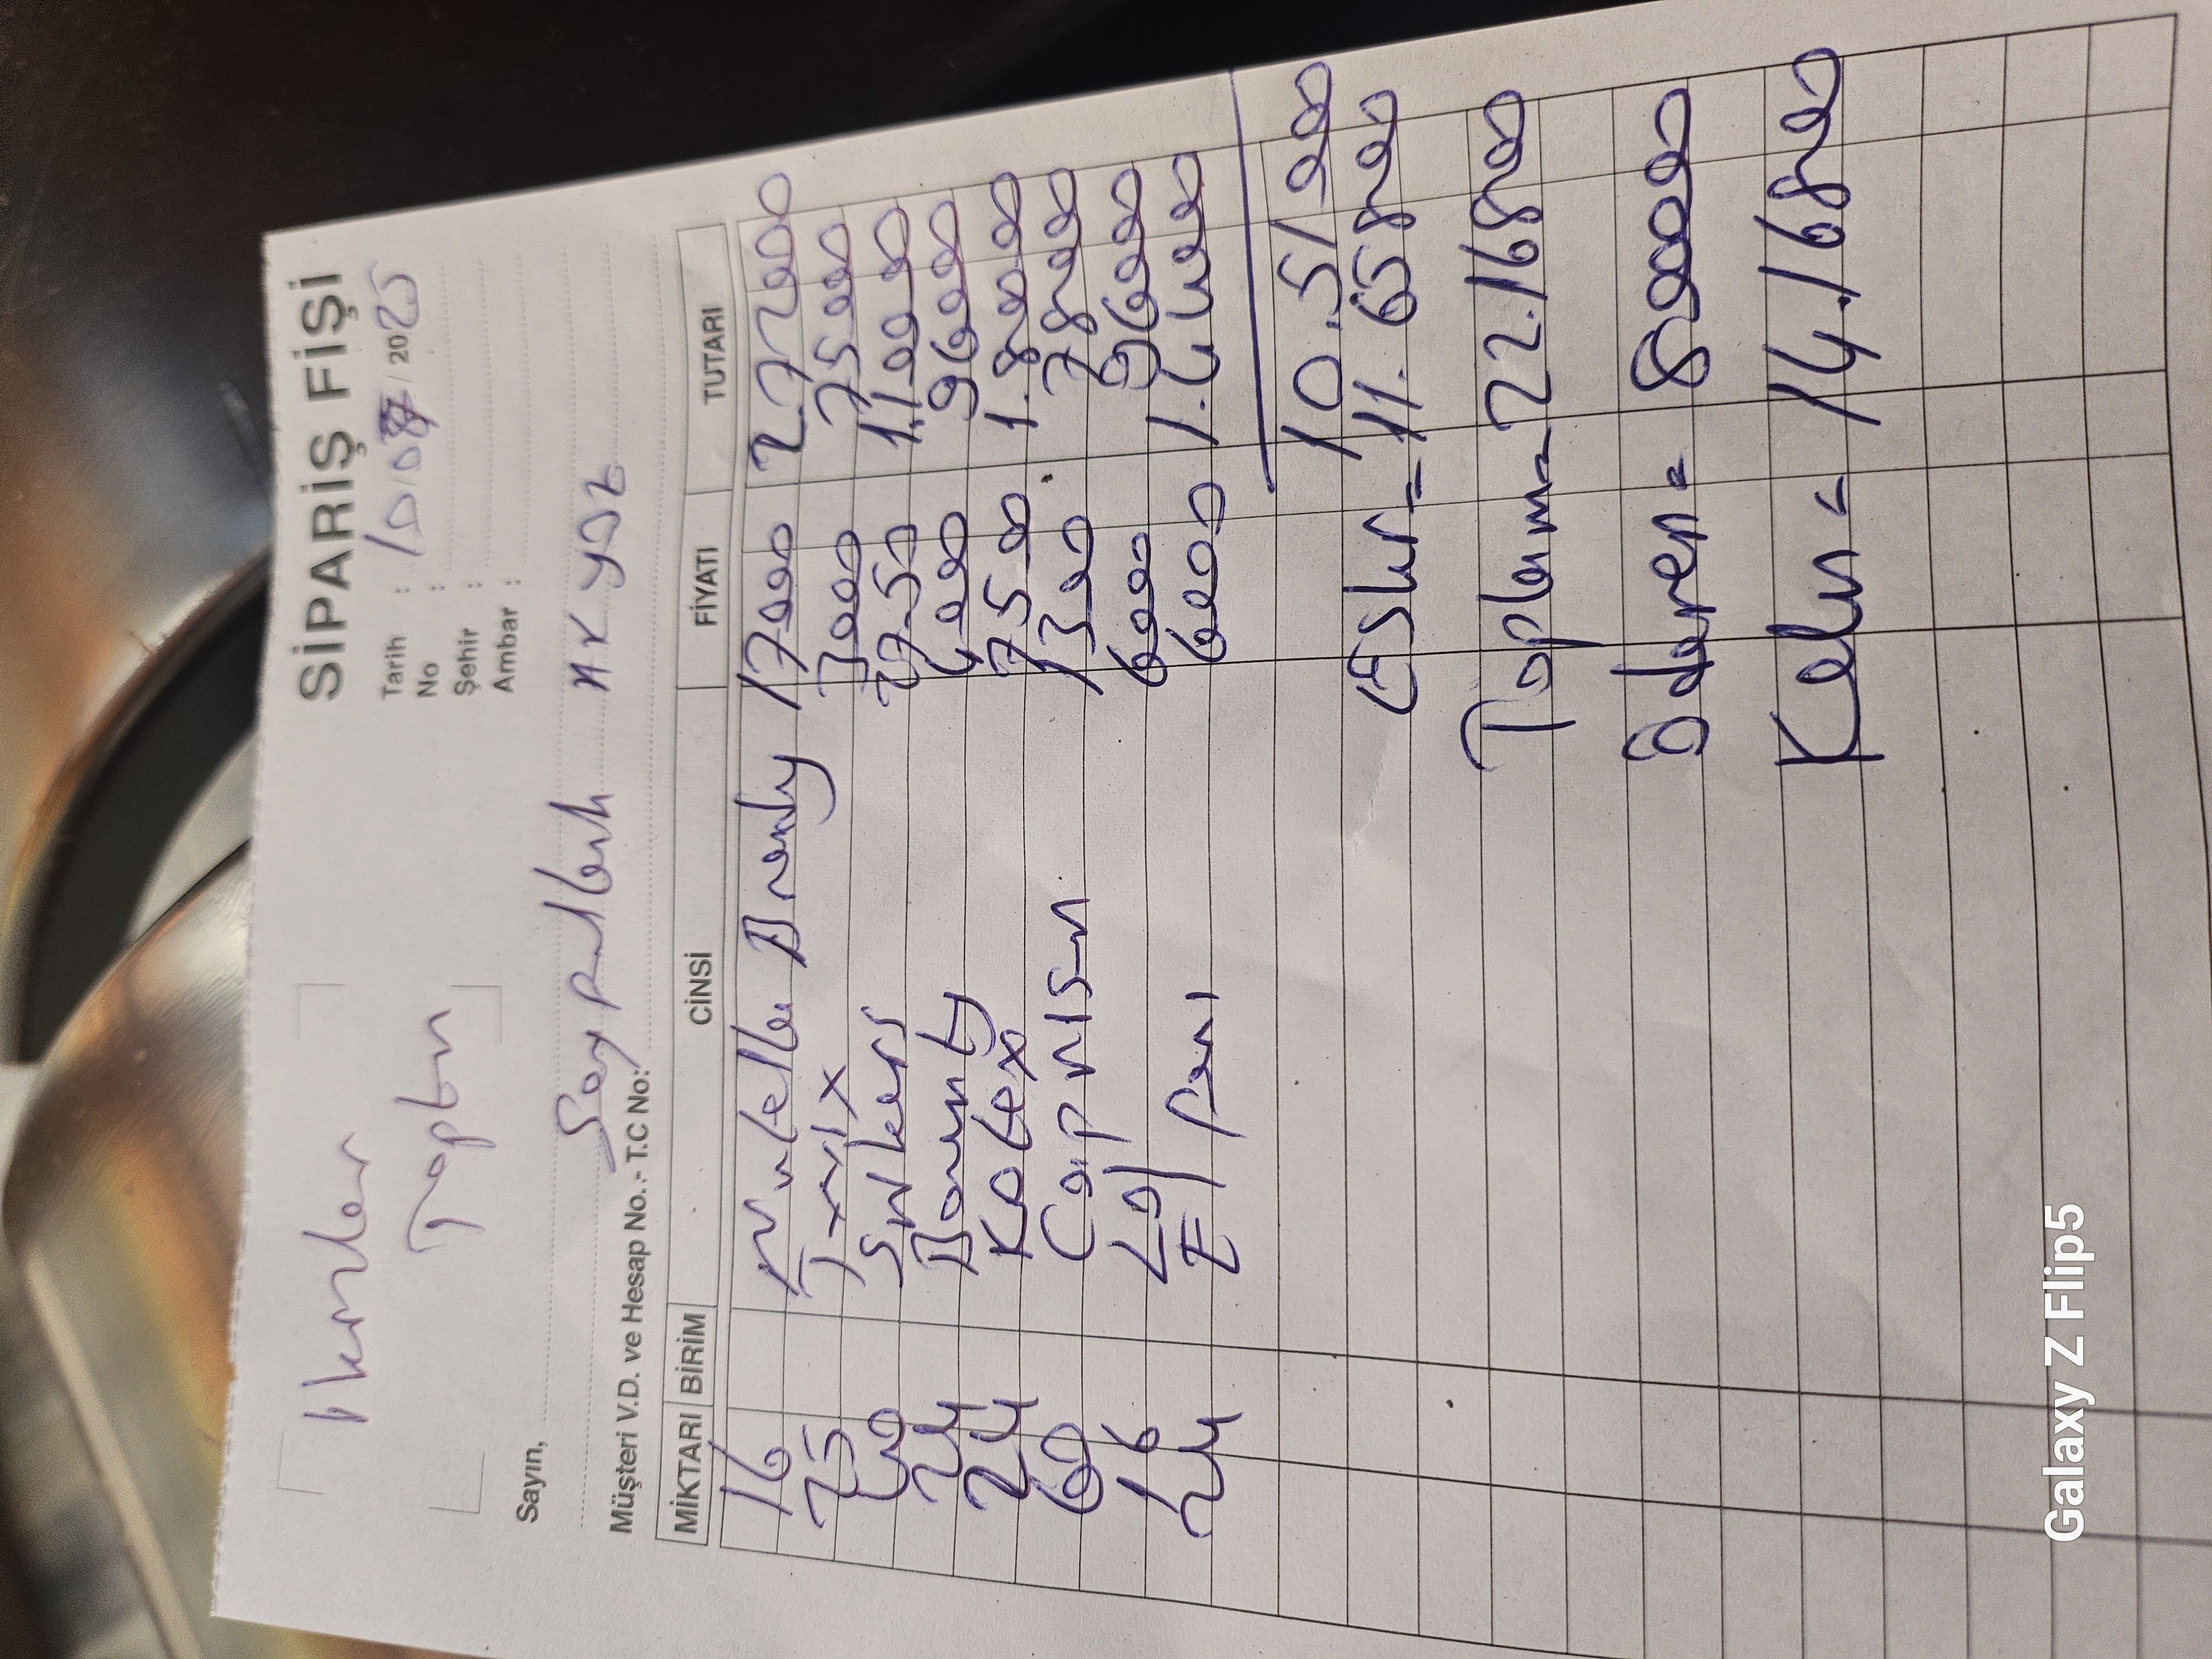 SİPARİŞ FİŞİ
Tarih : 10/08/2025
No :
Şehir :
Ambar :
Toptan
Sayın,
Müşteri V.D. ve Hesap No.- T.C No:
MİKTARI BİRİM CİNSİ FİYATI TUTARI
16 Nutella Bready 17000 2.72000
25 Twix 3000 75000
40 Snikers 27.50 1.10000
24 Bounty 4000 96000
24 Kotex 75.00 1.80000
60 Caprison 1300 78000
16 6000 96000
24 6000 1.44000
10.5100
Eski = 11.65800
Toplam = 22.16800
Ödenen = 80000
Kalan = 14.16800
Galaxy Z Flip5